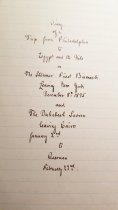 Diary
of
Trip from Philadelphia
to
Egypt and the Nile
in
The Steamer Fürst Bismarck
Leaving New York
December 8th 1895
and
The Dahabeah
leaving Cairo
January 2nd
to
February 23rd